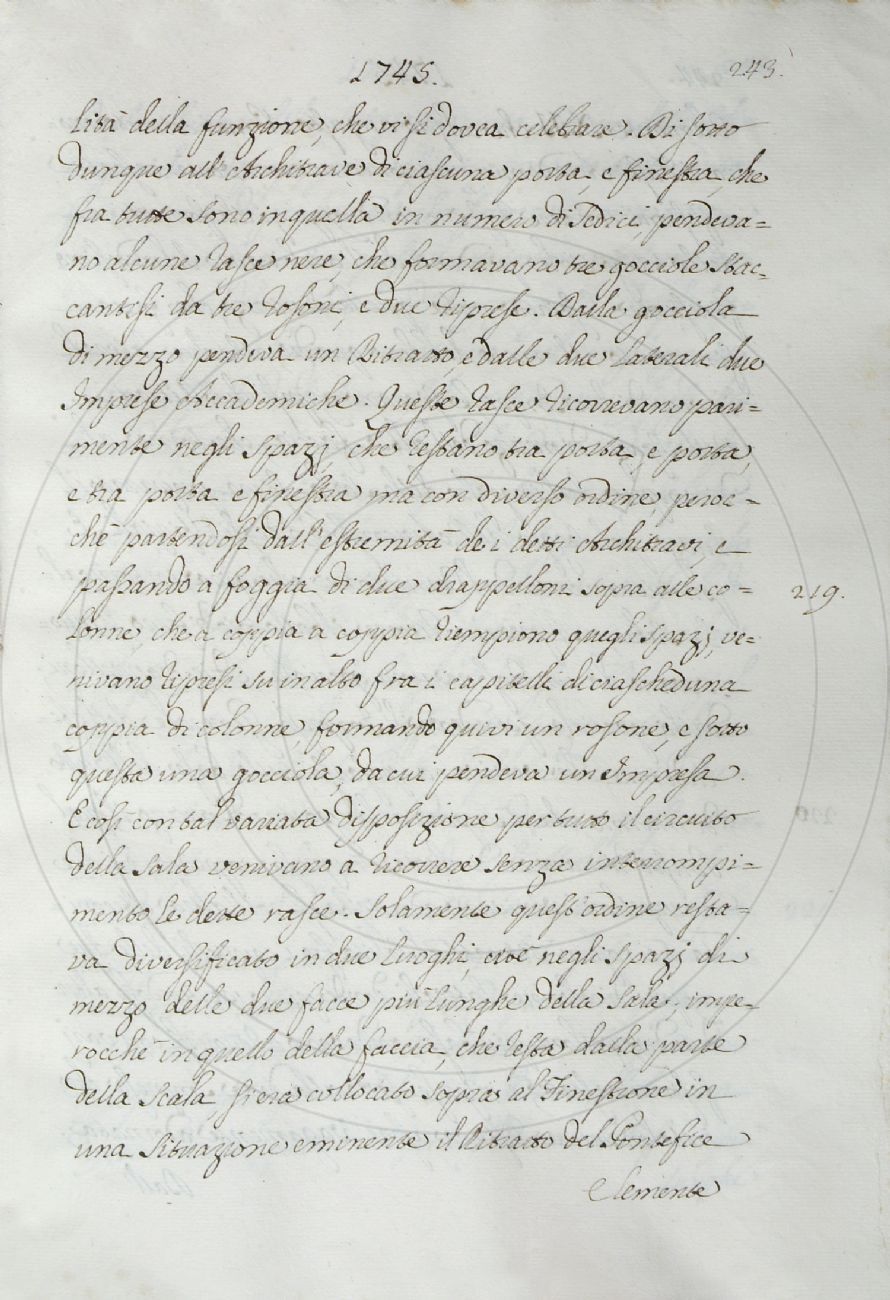 1745.
243.
lità della funzione, che vi si dovea celebrare. Di sotto
dunque all'Architrave di ciascuna porta, e finestra, che
fra tutte sono in quella in numero di Sedici, pendeva=
no alcune rasce nere, che formavano tre gocciole stac=
cantisi da tre rosoni, e due riprese. Dalla gocciola
di mezzo pendeva un Ritratto, e dalle due laterali due
Imprese Accademiche. Queste rasce ricorrevano pari=
mente negli spazj, che restano tra porta, e porta,
e tra porta e finestra ma con diverso ordine, peroc=
chè partendosi dall'estremità de i detti Architravi, e
passando a foggia di due drappelloni sopra alle co=
219.
lonne, che a coppia a coppia riempiono quegli spazj, ve=
nivano ripresi su in alto fra i capitelli di ciascheduna
coppia di colonne, formando quivi un rosone, e sotto
questa una gocciola, da cui pendeva un Impresa.
E così con tal variata disposizione per tutto il circuito
della Sala venivano a ricorrere senza interrompi=
mento le dette rasce. Solamente quest'ordine resta=
va diversificato in due luoghi, cioè negli spazj di
mezzo delle due facce più lunghe della Sala, impe=
rocchè in quello della faccia, che resta dalla parte
della Scala si era collocato sopra al Finestrone in
una situazione eminente il Ritratto del Pontefice
Clemente